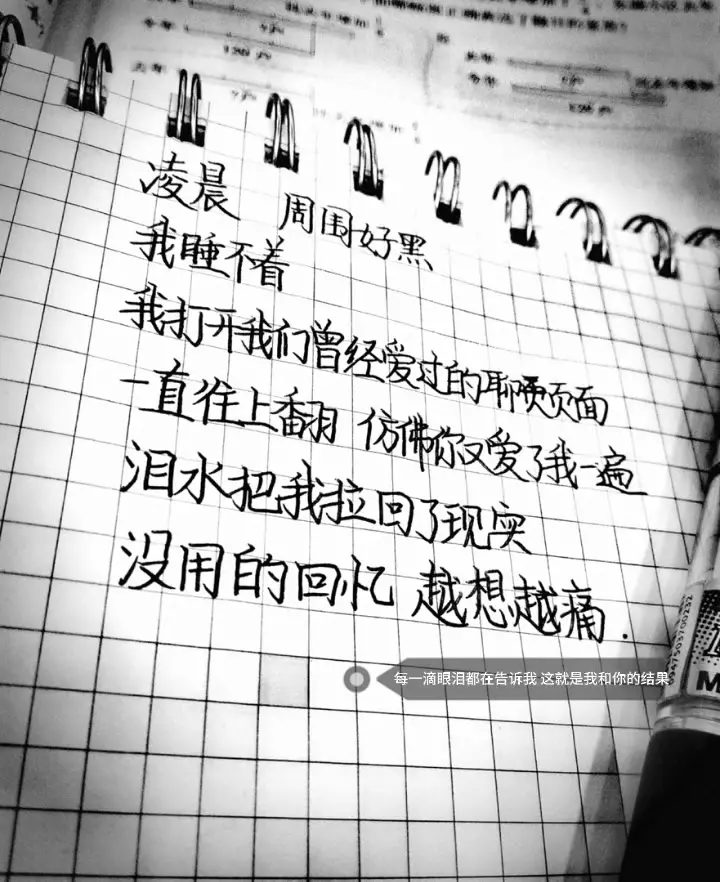 去年
今年
去年
凌晨 周围好黑
我睡不着
我打开我们曾经爱过的聊天页面
一直往上翻 仿佛你又爱了我一遍
泪水把我拉回了现实
没用的回忆 越想越痛.
每一滴眼泪都在告诉我 这就是我和你的结果